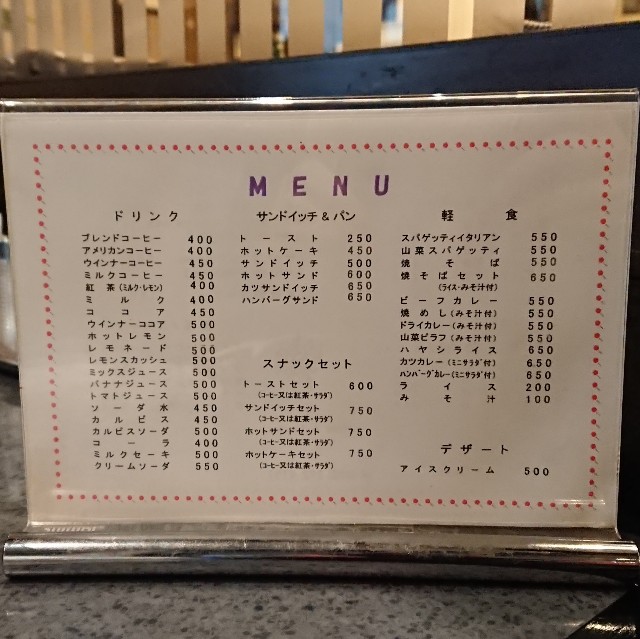 MENU
ドリンク
ブレンドコーヒー 400
アメリカンコーヒー 400
ウインナーコーヒー 450
ミルクコーヒー 450
紅茶(ミルク・レモン) 400
ミルク 400
ココア 450
ウインナーココア 500
ホットレモン 500
レモネード 500
レモンスカッシュ 500
ミックスジュース 500
バナナジュース 500
トマトジュース 500
ソーダ水 450
カルピス 450
カルピスソーダ 500
コーラ 400
ミルクセーキ 500
クリームソーダ 550
サンドイッチ&パン
トースト 250
ホットケーキ 450
サンドイッチ 500
ホットサンド 600
カツサンドイッチ 650
ハンバーグサンド 650
スナックセット
トーストセット 600
(コーヒー又は紅茶・サラダ)
サンドイッチセット 750
(コーヒー又は紅茶・サラダ)
ホットサンドセット 750
(コーヒー又は紅茶・サラダ)
ホットケーキセット 750
(コーヒー又は紅茶・サラダ)
軽食
スパゲッティイタリアン 550
山菜スパゲッティ 550
焼そば 550
焼そばセット 650
(ライス・みそ汁付)
ビーフカレー 550
焼めし(みそ汁付) 550
ドライカレー(みそ汁付) 550
山菜ピラフ(みそ汁付) 550
ハヤシライス 650
カツカレー(ミニサラダ付) 650
ハンバーグカレー(ミニサラダ付) 650
ライス 200
みそ汁 100
デザート
アイスクリーム 500